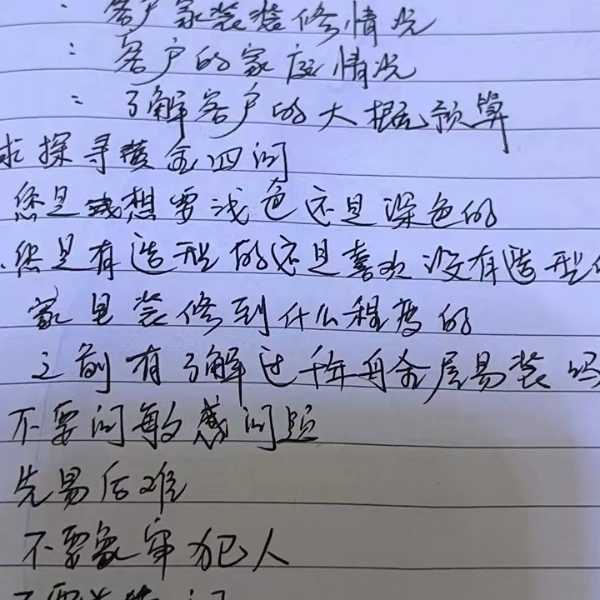 : 客户家装装修情况
: 客户的家庭情况
: 了解客户的大概预算
求探寻黄金四问
您是想要浅色还是深色的
您是有造型的还是喜欢没有造型的
家里装修到什么程度的
之前有了解过千年舟全屋易装吗
不要问敏感问题
先易后难
不要象审犯人
不要